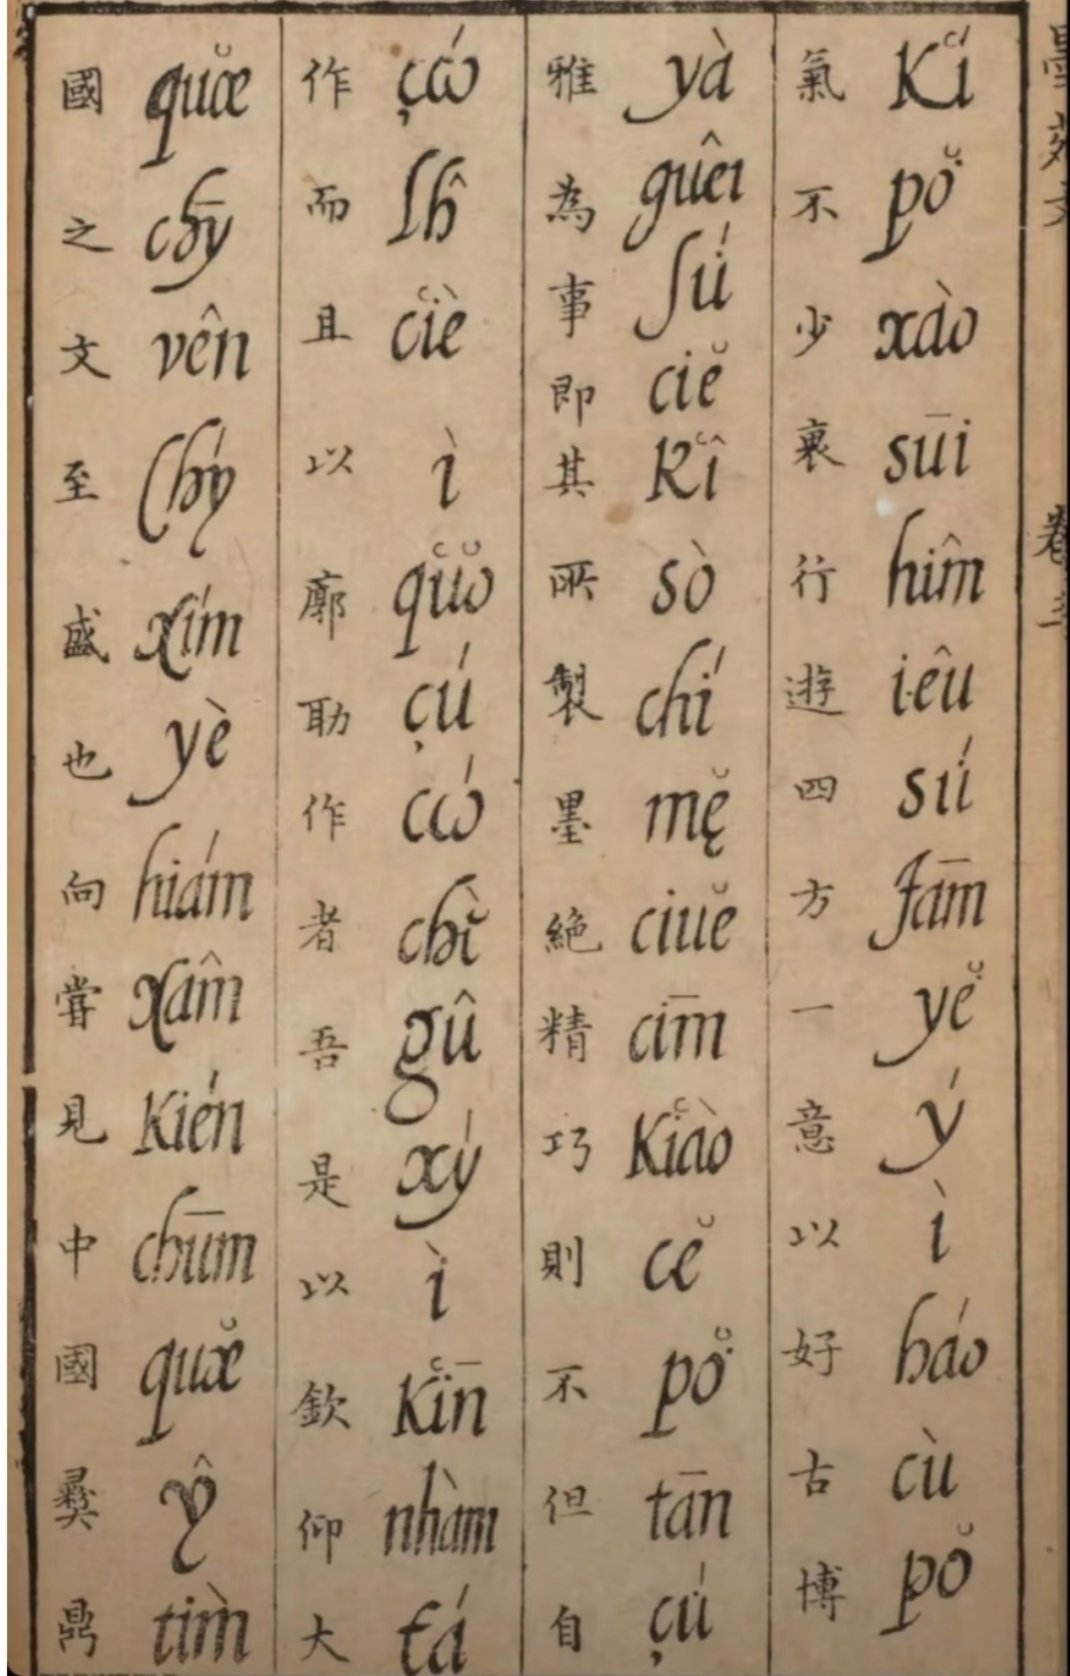 氣不少衰行遊四方一意以好古博
Kʻí pǒ xào sūi hîm iêu sú fām yě ý ì háo cù pǒ
雅為事即其所製墨絕精巧則不但自
yà guêi sú ciě Kʻî sò chí mě ciuě cīm Kʻiào cě pǒ tān çú
作而且以廓助作者吾是以欽仰大
çó lĥ cʻiè ì qʻuǒ çú có chè gû xý ì Kʻīn nhàm tá
國之文至盛也向嘗見中國彝鼎
quǒe chȳ vên chý xím yè hiám xâm Kién chūm quǒe ŷ tìm